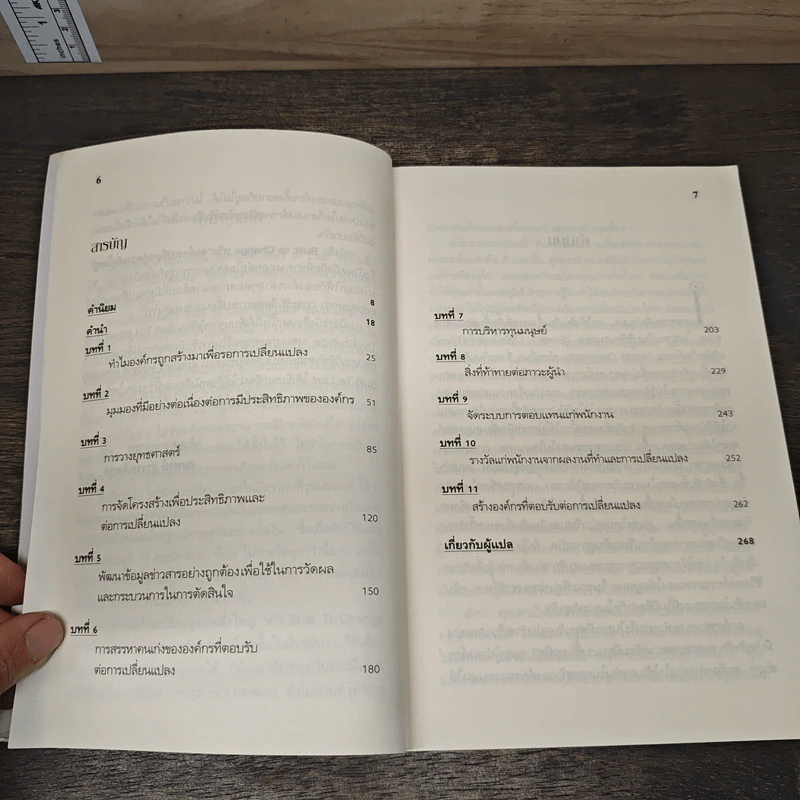 6
สารบัญ
คำนิยม 8
คำนำ 18
บทที่ 1
ทำไมองค์กรถูกสร้างมาเพื่อรอการเปลี่ยนแปลง 25
บทที่ 2
มุมมองที่มีอย่างต่อเนื่องต่อการมีประสิทธิภาพขององค์กร 51
บทที่ 3
การวางยุทธศาสตร์ 85
บทที่ 4
การจัดโครงสร้างเพื่อประสิทธิภาพและ
ต่อการเปลี่ยนแปลง 120
บทที่ 5
พัฒนาข้อมูลข่าวสารอย่างถูกต้องเพื่อใช้ในการวัดผล
และกระบวนการในการตัดสินใจ 150
บทที่ 6
การสรรหาคนเก่งขององค์กรที่ตอบรับ
ต่อการเปลี่ยนแปลง 180
7
บทที่ 7
การบริหารทุนมนุษย์ 203
บทที่ 8
สิ่งที่ท้าทายต่อภาวะผู้นำ 229
บทที่ 9
จัดระบบการตอบแทนแก่พนักงาน 243
บทที่ 10
รางวัลแก่พนักงานจากผลงานที่ทำและการเปลี่ยนแปลง 252
บทที่ 11
สร้างองค์กรที่ตอบรับต่อการเปลี่ยนแปลง 262
เกี่ยวกับผู้แปล 268